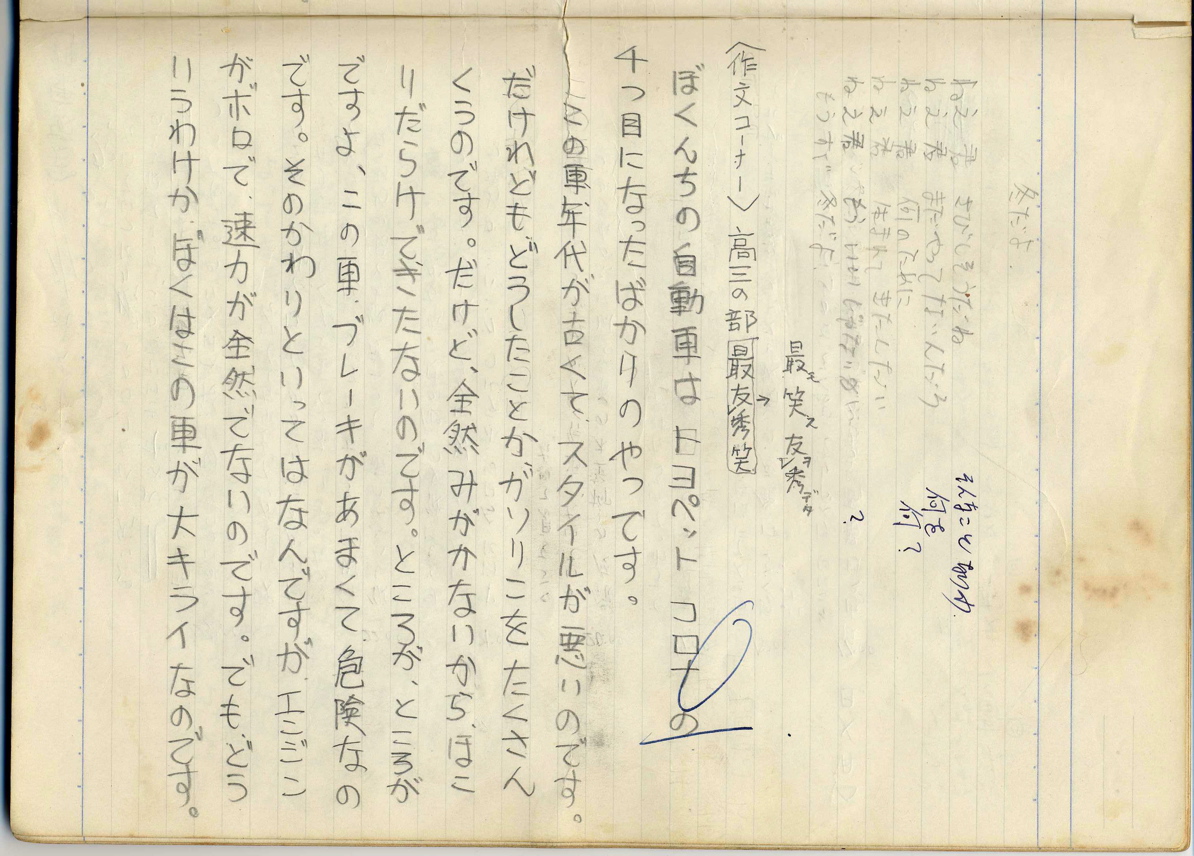 冬だよ
ねえ君 さびしそうだね
ねえ君 まだやってないんだろう
ねえ君 何のために
ねえ君 生まれて またしたい
もうすぐ 冬だよ
そんなことないわ
何を
何?
?
最も笑える友を秀でた
〈作文コーナー〉高三の部 最友秀笑
ぼくんちの自動車はトヨペット コロナの
4つ目になったばかりのやつです。
この車年代が古くてスタイルが悪いのです。
だけれどもどうしたことかガソリンをたくさん
くうのです。だけど、全然みがかないから、ほこ
りだらけできたないのです。ところが、ところが
ですよ、この車、ブレーキがあまくて危険なの
です。そのかわりといってはなんですが、エンジン
がボロで、速力が全然でないのです。でも、どう
いうわけか、ぼくはこの車が大キライなのです。